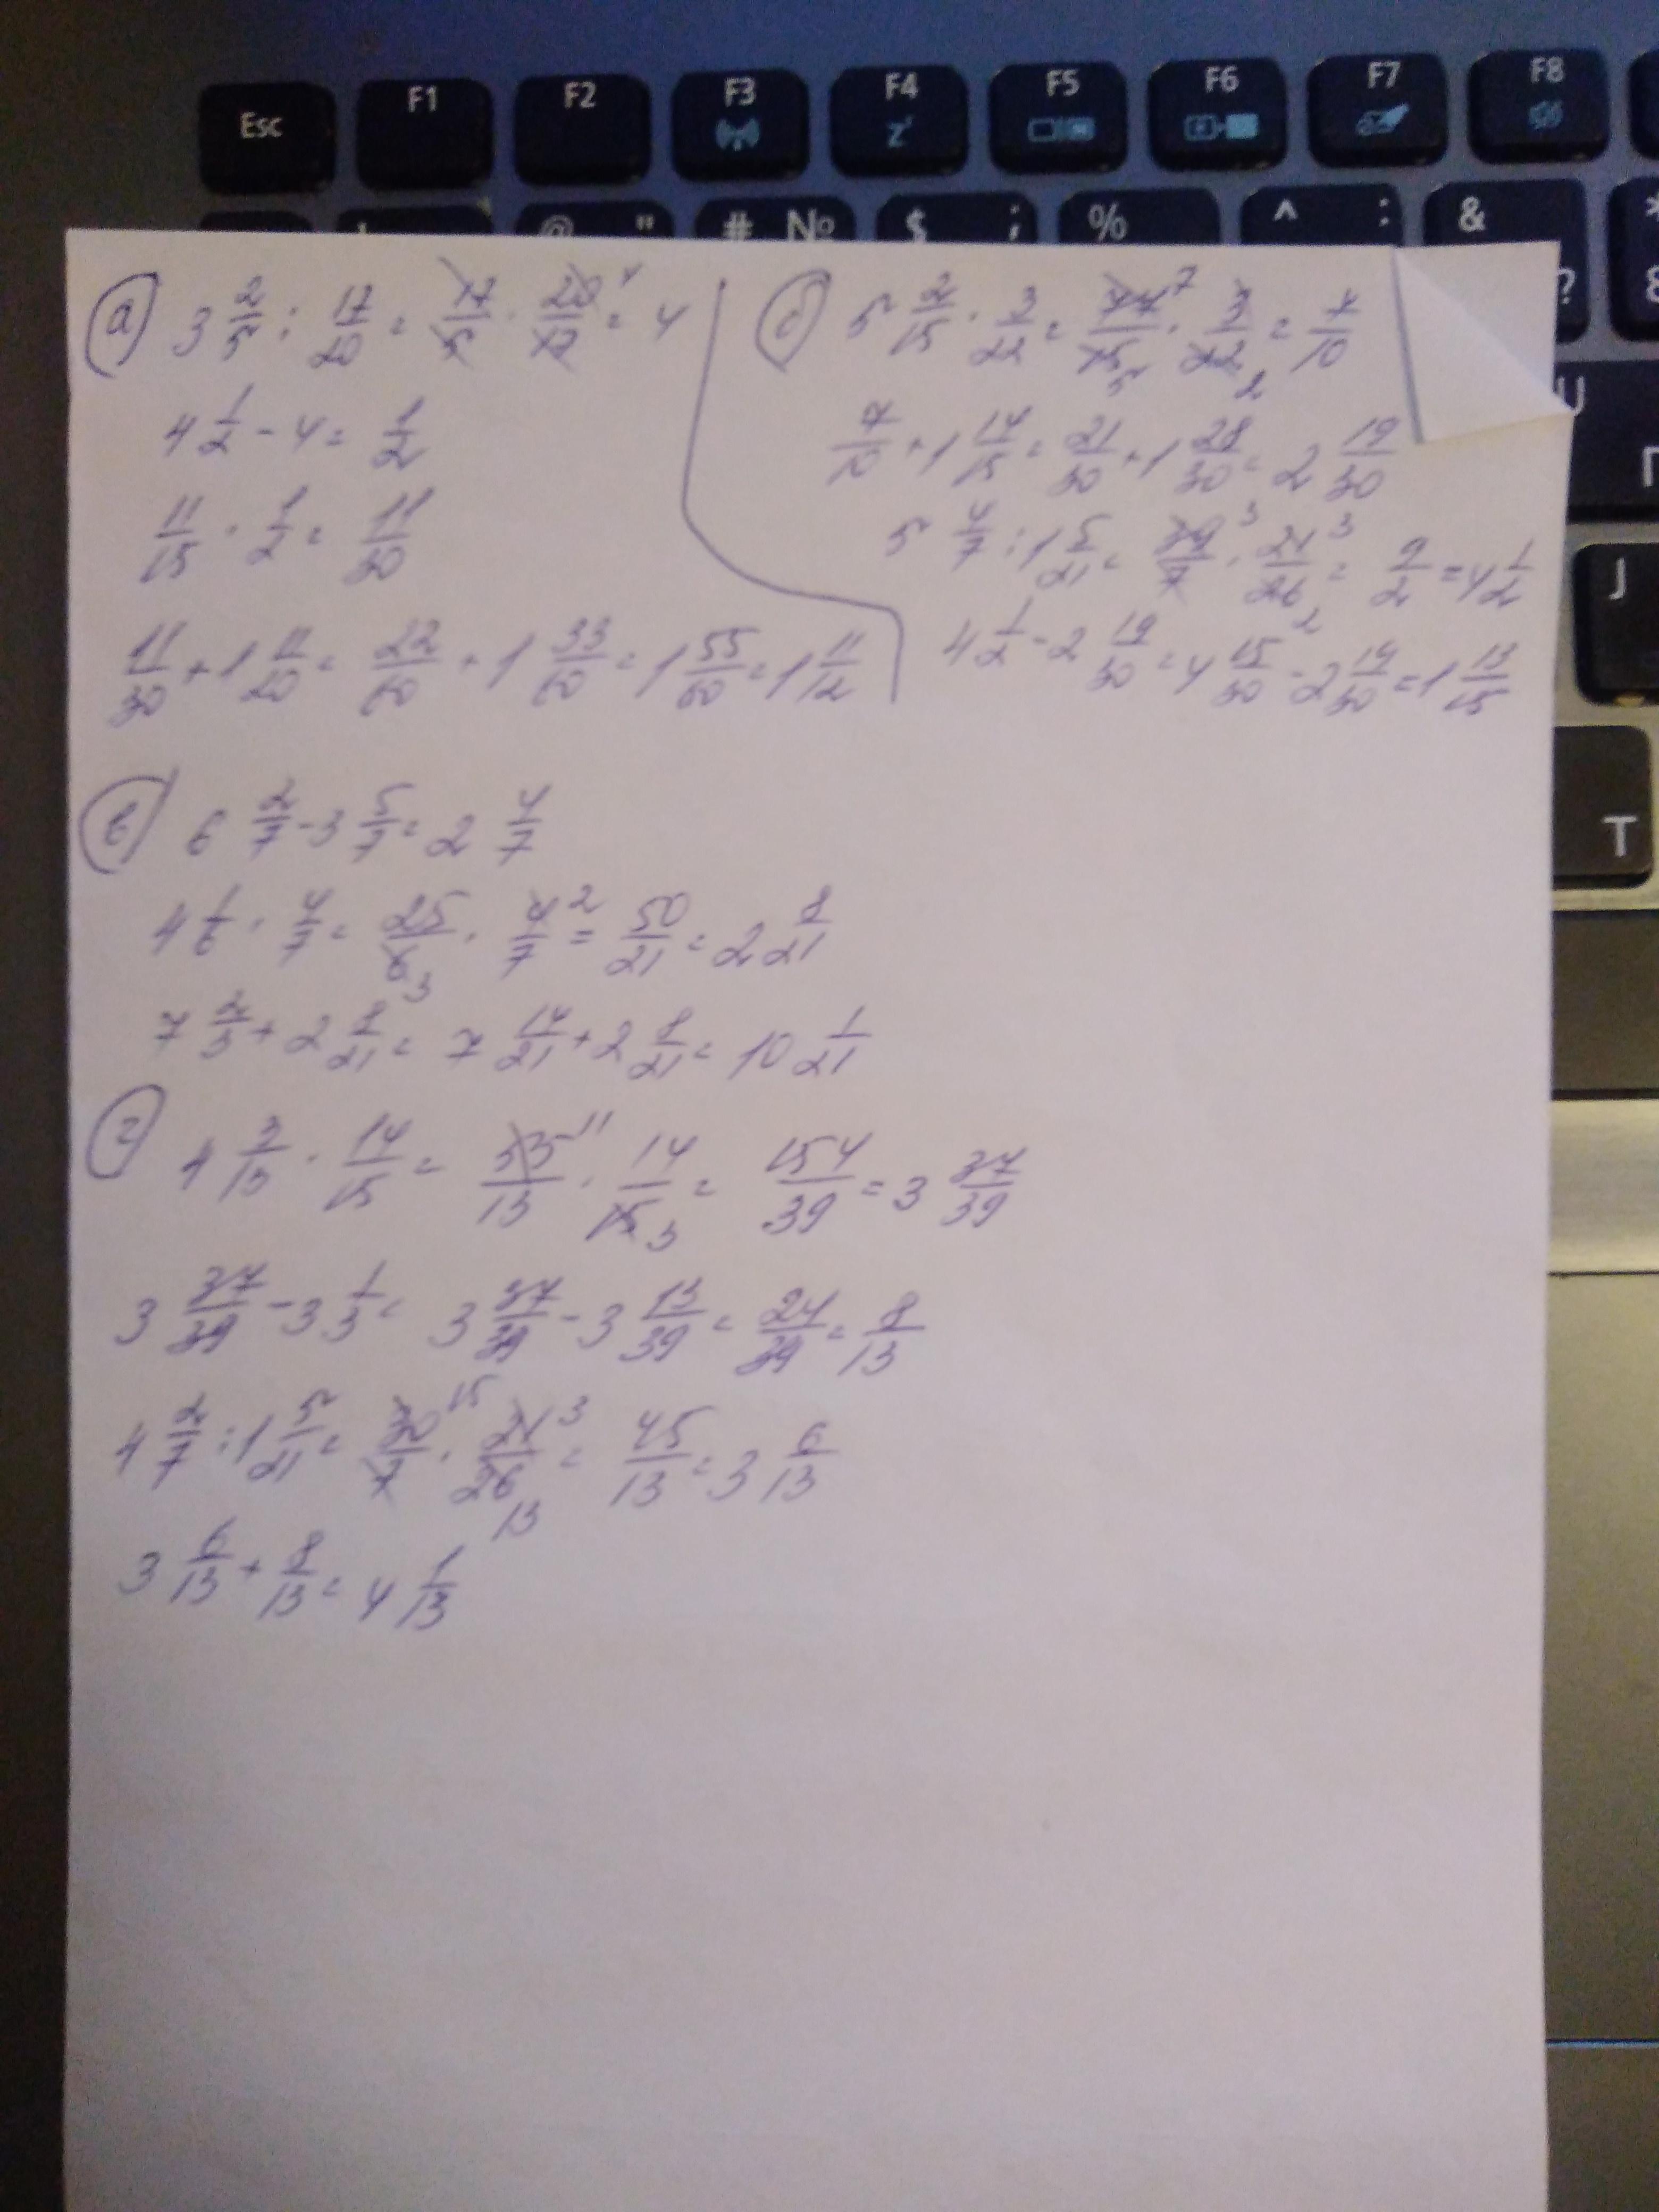 Esc F1 F2 F3 F4 z' F5 F6 F7 F8
@ " # № $ ; % ^ : & *
? 8
U
J
T
а) 3 2/5 : 17/20 = 17/5 · 20/17 4 = 4
4 1/2 - 4 = 1/2
11/15 · 1/2 = 11/30
11/30 + 1 11/20 = 22/60 + 1 33/60 = 1 55/60 = 1 11/12
б) 5 2/15 · 3/22 = 77 7/15 5 · 3/22 2 = 7/10
7/10 + 1 14/15 = 21/30 + 1 28/30 = 2 19/30
5 4/7 : 1 5/21 = 39 3/7 · 21 3/26 2 = 9/2 = 4 1/2
4 1/2 - 2 19/30 = 4 15/30 - 2 19/30 = 1 13/15
в) 6 2/7 - 3 5/7 = 2 4/7
4 1/6 · 4/7 = 25/6 3 · 4 2/7 = 50/21 = 2 8/21
7 2/3 + 2 8/21 = 7 14/21 + 2 8/21 = 10 1/21
г) 4 3/13 · 14/15 = 55 11/13 · 14/15 3 = 154/39 = 3 37/39
3 37/39 - 3 1/3 = 3 37/39 - 3 13/39 = 24/39 = 8/13
4 2/7 : 1 5/21 = 30 15/7 · 21 3/26 13 = 45/13 = 3 6/13
3 6/13 + 8/13 = 4 1/13